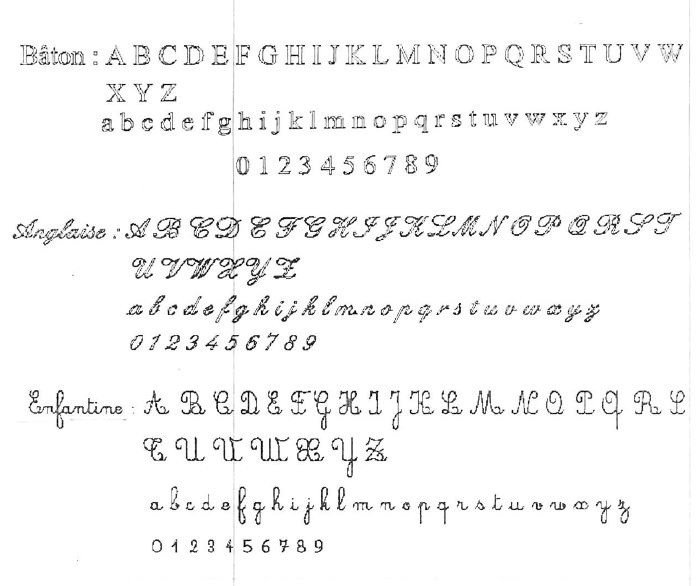 Bâton : A B C D E F G H I J K L M N O P Q R S T U V W
X Y Z
a b c d e f g h i j k l m n o p q r s t u v w x y z
0 1 2 3 4 5 6 7 8 9
Anglaise : A B C D E F G H I J K L M N O P Q R S T
U V W X Y Z
a b c d e f g h i j k l m n o p q r s t u v w x y z
0 1 2 3 4 5 6 7 8 9
Enfantine : A B C D E F G H I J K L M N O P Q R S
T U V W X Y Z
a b c d e f g h i j k l m n o p q r s t u v w x y z
0 1 2 3 4 5 6 7 8 9